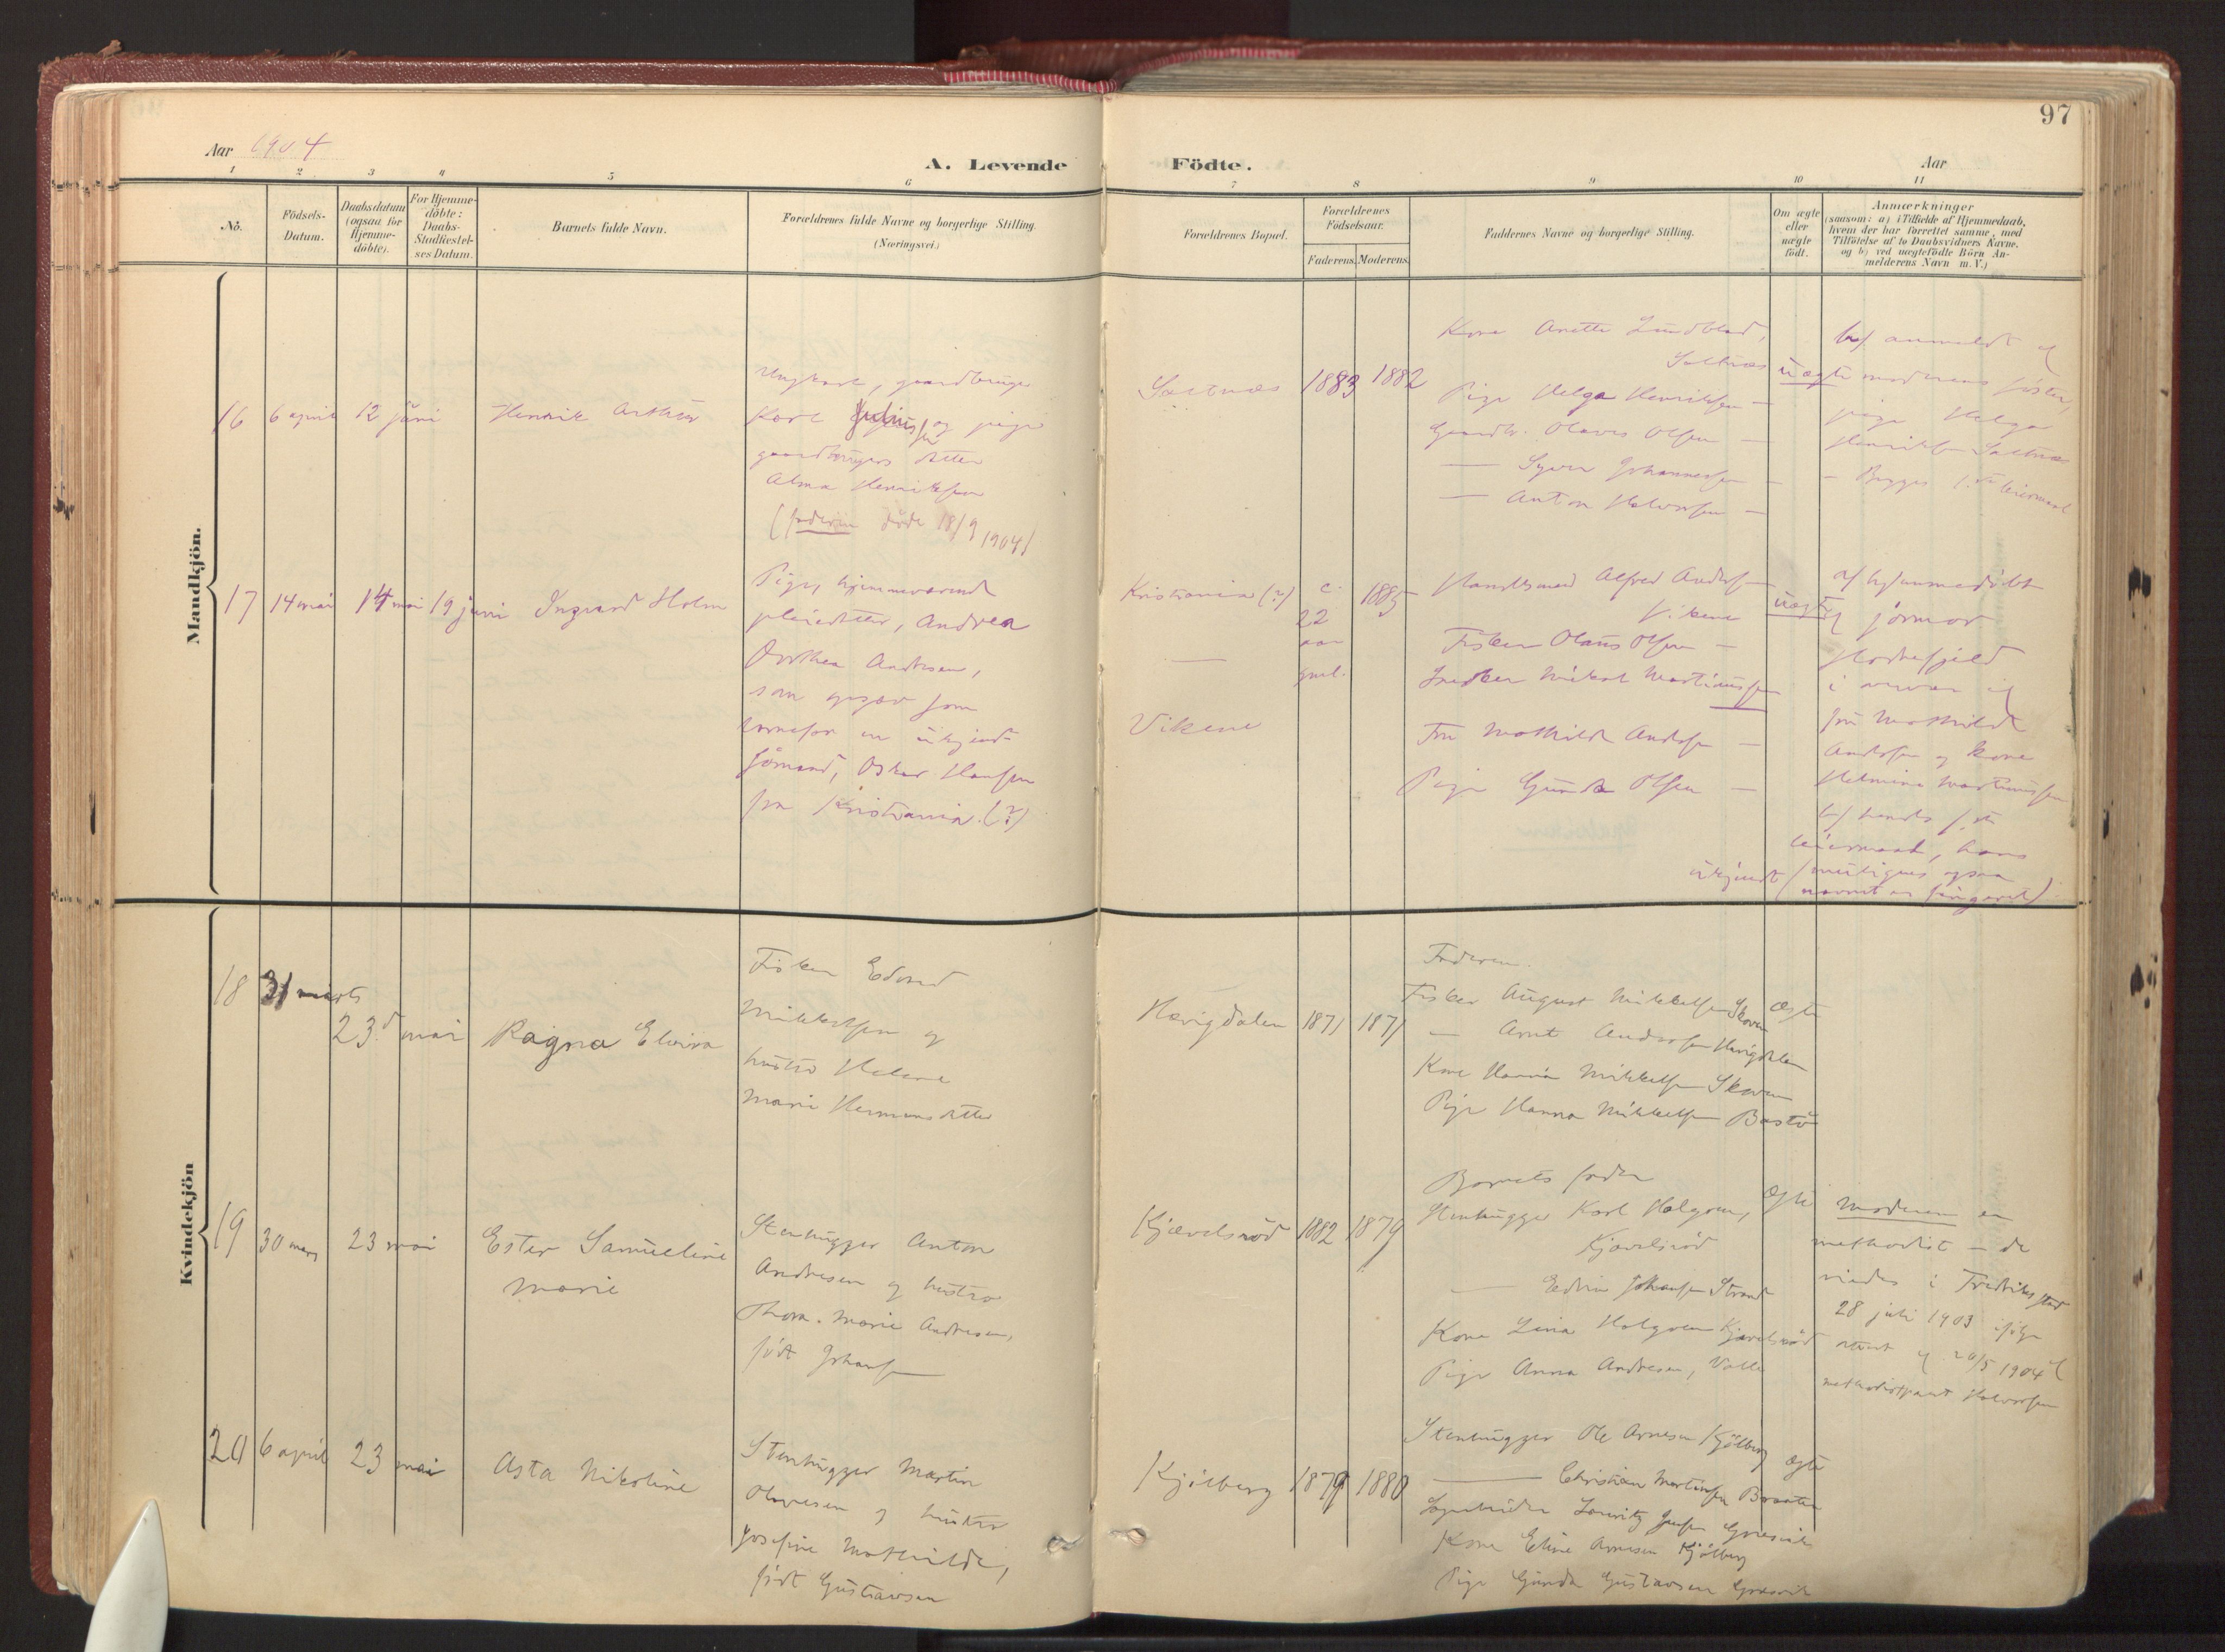 97
Aar 1904
A. Levende Födte.
Aar
1 2 3 4 5 6 7 8 9 10 11
No.
Födsels-
Datum.
Daabsdatum
(ogsaa for
Hjemme-
döbte).
For Hjemme-
döbte:
Daabs-
Stadfæstel-
ses Datum.
Barnets fulde Navn.
Forældrenes fulde Navne og borgerlige Stilling.
(Næringsvei.)
Forældrenes Bopæl.
Forældrenes
Födselsaar.
Faderens.
Moderens.
Faddernes Navne og borgerlige Stilling.
Om ægte
eller
uægte
födt.
Anmærkninger
(saasom: a) i Tilfælde af Hjemmedaab,
hvem der har forrettet samme, med
Tilföielse af to Daabsvidners Navne,
og b) ved uægtefödte Börn An-
melderens Navn m. V.)
Mandkjön.
16
6 april
12 juni
Henrik Arthur
Ungkarl, gaardbruger
Karl Juliussen og pige
gaardbrugers datter
Alma Henriksen
(faderen døde 18/9 1904)
Saltnæs
1883
1882
Kone Anette Lundblad,
Saltnæs
Pige Helga Henriksen —
Gaardbr. Olaves Olsen —
— Syver Johannessen —
— Anton Halvorsen —
uægte
b) anmeldt af
moderens søster,
pige Helga
Henriksen Saltnæs
— Begges 1ste leiermaal
17
14 mai
14 mai
19 juni
Ingvard Holm
Pige, hjemmeværende
pleiedatter, Andrea
Dorthea Andresen,
som opgav som
barnefar en ukjendt
sømand, Oskar Hansen
fra Kristiania (?)
Kristiania (?)
—
Vikene
c.
22
aar
gml.
1885
Handelsmand Alfred Andersen
Vikene
Fisker Olaus Olsen —
Snedker Mikal Martinussen
Fru Mathilde Andersen —
Pige Gunda Olsen —
uægte
a) hjemmedøbt
af jormor
i nærvær af
fru Mathilde
Andersen og kone
Helmine Martinussen
b) hendes 1ste
leiermaal, hans
ukjendt (muligens ogsaa
navnet er fingeret)
Kvindekjön
18
31 marts
23d mai
Ragna Elvira
Fisker Edvard
Mikkelsen og
hustru Helene
Marie Hermansdatter
Hævigdalen
1871
1871
Faderen.
Fisker August Mikkelsen Skoven
— Arnt Andersen Hævigdalen
Kone Hanna Mikkelsen Skoven
Pige Hanna Mikkelsen Bastø
ægte
19
30 mars
23 mai
Ester Samueline
Marie
Stenhugger Anton
Andresen og hustru
Thora Marie Andresen,
født Johansen
Kjævelsrød
1882
1879
Barnets fader
Stenhugger Karl Holgersen,
Kjævelsrød
— Edvin Johansen Strand
Kone Lina Holgersen Kjævelsrød
Pige Anna Andresen, Valle
ægte
Moderen er
methodist — de
viedes i Fredriksstad
28 juli 1903 ifølge
attest af 20/5 1904 af
methodistpræst Halvorsen
20
6 april
23 mai
Asta Nikoline
Stenhugger Martin
Olavesen og hustru
Josefine Mathilde,
født Gustavsen
Kjølberg
1879
1880
Stenhugger Ole Arnesen Kjølberg
— Christian Martinsen Braaten
Lauritz Jensen Græsvik
Kone Eline Arnesen Kjølberg
Pige Gunda Gustavsen Græsvik
ægte